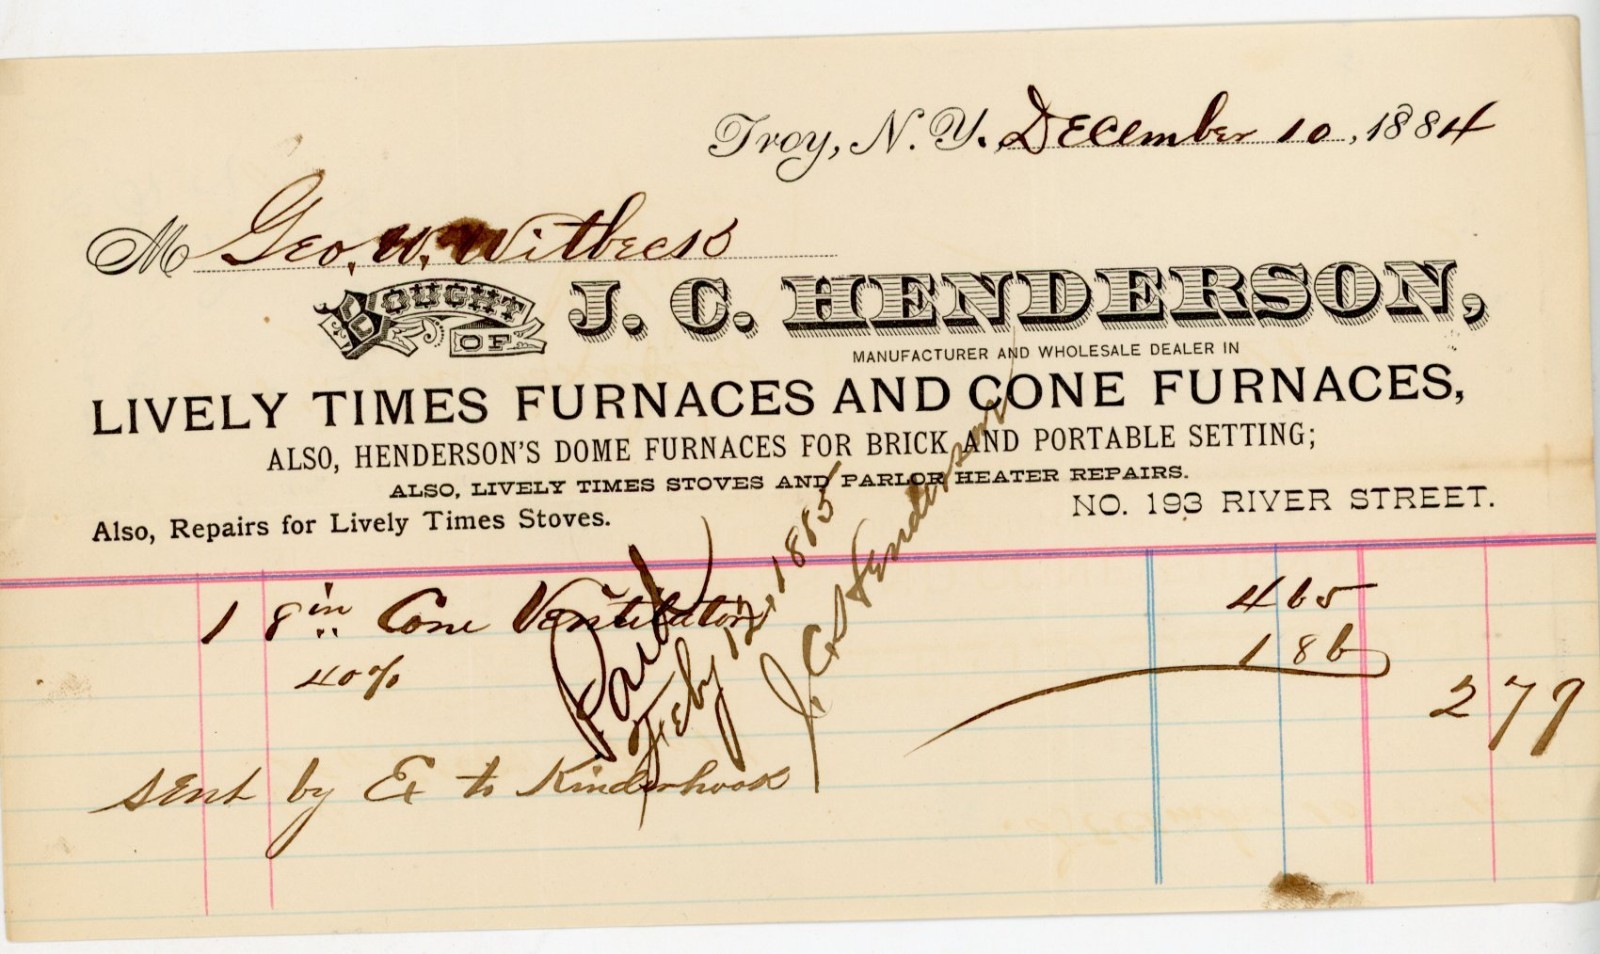 Troy, N. Y. December 10, 1884
M Geo. W. Witbeck
BOUGHT OF J. C. HENDERSON,
MANUFACTURER AND WHOLESALE DEALER IN
LIVELY TIMES FURNACES AND CONE FURNACES,
ALSO, HENDERSON'S DOME FURNACES FOR BRICK AND PORTABLE SETTING;
ALSO, LIVELY TIMES STOVES AND PARLOR HEATER REPAIRS.
NO. 193 RIVER STREET.
Also, Repairs for Lively Times Stoves.
1 8 in Cone Ventilator 4 65
40% 1 86
2 79
sent by Ex to Kinderhook
Paid
Feby 12, 1885
J. C. Henderson